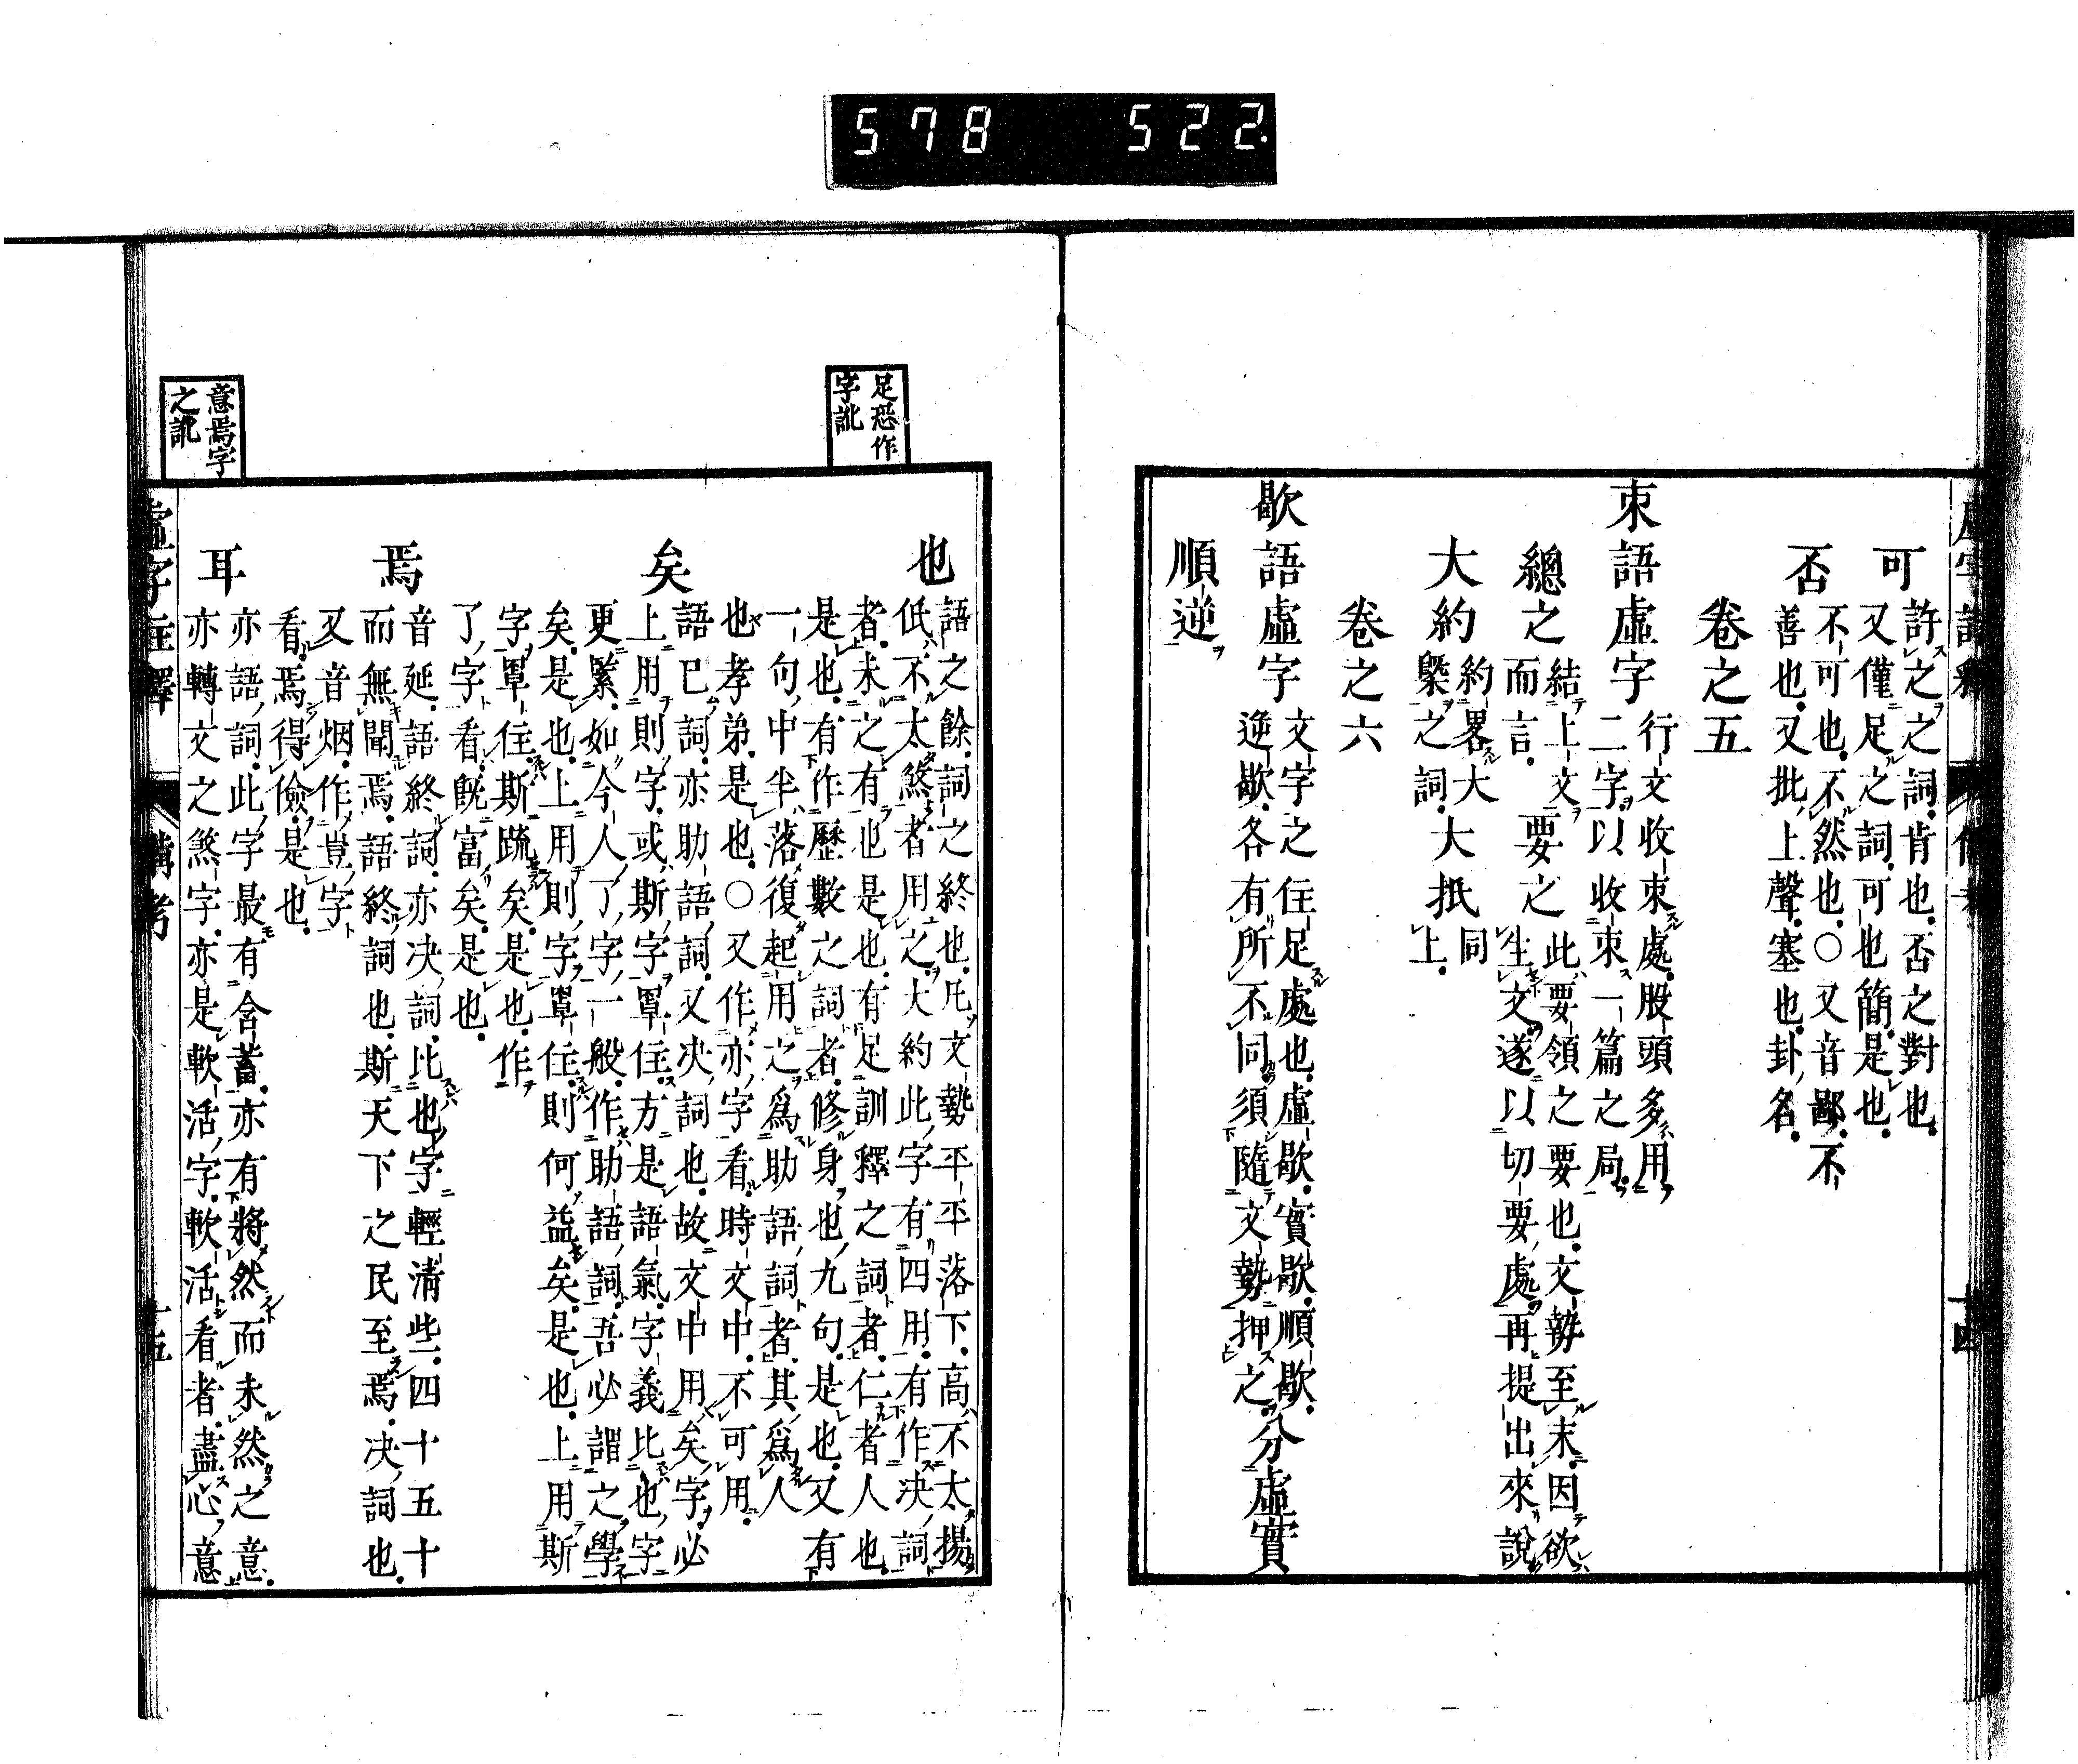 578 522
可 許之之詞.肯也.否之對也.
又僅足之詞.可也簡.是也.
否 不可也.不然也.○又音鄙.不
善也.又批上聲.塞也.卦名.
卷之五
束語虛字 行文收束處.股頭多用
二字.以收束一篇之局.
總之 結上文 要之 此要領之要也.文勢至末.因欲
而言. 生文遂以切要處.再提出來說
大約 約畧大 大抵 同
槩之詞. 上.
卷之六
歇語虛字 文字之住足處也.虛歇.實歇.順歇.分虛實
逆歇.各有所不同.須隨文勢押之.
順逆
足恐作
字訛
也 語之餘.詞之終也.凡文勢平平落下.高不太揚
低不太煞者用之.大約此字有四用.有作決詞
者.未之有也是也.有足訓釋之詞者.仁者人也.
是也.有作歷數之詞者.修身也九句.是也.又有
一句中半落復起.用之爲助語詞者.其爲人
也孝弟.是也.○又作亦字看.時文中.不可用.
矣 語已詞.亦助語詞.又決詞也.故文中用矣字.必
上用則字.或斯字罩住.方是語氣.字義比也字
更緊.如今人了字一般.作助語詞.吾必謂之學
矣.是也.上用則字罩住.則何益矣.是也.上用斯
字罩住.斯疏矣.是也.作
了字看.旣富矣.是也.
焉 音延.語終詞.亦決詞.比也字輕淸些.四十五十
而無聞焉.語終詞也.斯天下之民至焉.決詞也.
又音烟.作豈字
看.焉得儉.是也.
耳 亦語詞.此字最有含蓄.亦有將然而未然之意.
亦轉文之煞字.亦是軟活字.軟活看者.盡心意
意焉字
之訛
虛字註釋 備考 十五